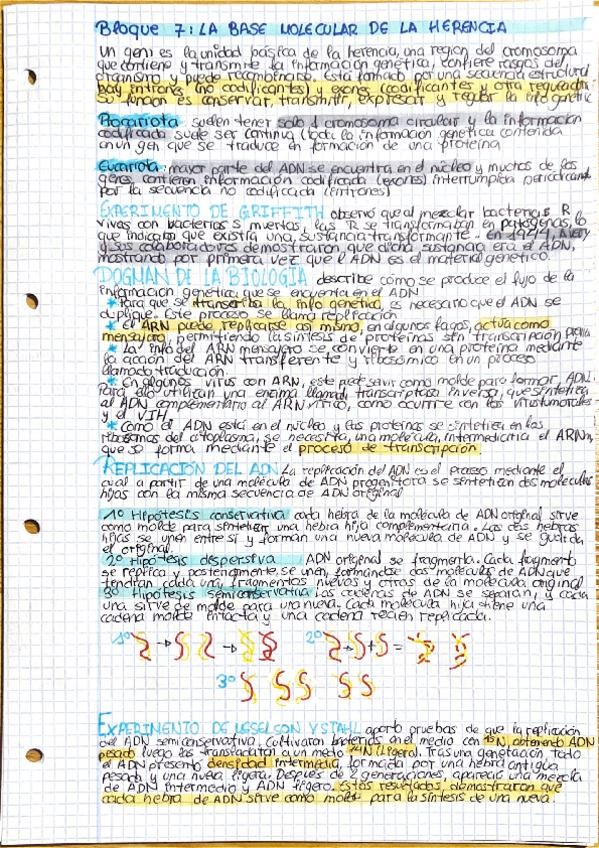 Bloque 7: LA BASE MOLECULAR DE LA HERENCIA
Un gen es la unidad básica de la herencia, una region del cromosoma
que contiene y transmite la información genética, confiere rasgos del
organismo y puede recombinarse. Está formado por una secuencia estructural
hay intrones (no codificantes) y exones (codificantes y otra reguladora
Su función es conservar, transmitir, expresar y regular la info genética
Procariota: suelen tener solo 1 cromosoma circular y la información
codificada suele ser continua (toda la información genética contenida
en un gen que se traduce en formación de una proteína
Eucariota: mayor parte del ADN se encuentra en el núcleo y muchos de los
genes contienen información codificada (exones) interrumpida
por la secuencia no codificada (intrones)
EXPERIMENTO DE GRIFFITH observó que al mezclar bacterias R
vivas con bacterias S muertas, las R se transforman en patógenas, lo
que indicaba que existía una sustancia transformante. en 1944, Avery
y sus colaboradores demostraron que dicha sustancia era el ADN,
mostrando por primera vez que el ADN es el material genético.
DOGMAN DE LA BIOLOGÍA describe cómo se produce el flujo de la
información genética que se encuentra en el ADN
* Para que se transcriba la info genética, es necesario que el ADN se
duplique. Este proceso se llama replicación
* El ARN puede replicarse así mismo, en algunos fagos, actúa como
mensajero, permitiendo la síntesis de proteínas sin transcripción previa
* La info del ARN mensajero se convierte en una proteína mediante
la acción del ARN transferente y ribosómico en un proceso
llamado traducción.
* En algunos virus con ARN, este puede servir como molde para formar ADN.
Para ello utilizan una enzima llamada transcriptasa inversa, que sintetiza
el ADN complementario al ARN vírico, como ocurre con los virus tumorales
y el VIH.
* Como el ADN está en el núcleo y las proteínas se sintetizan en los
ribosomas del citoplasma, se necesita una molécula intermediaria el ARNm
que se forma mediante el proceso de transcripción.
REPLICACIÓN DEL ADN La replicación del ADN es el proceso mediante el
cual a partir de una molécula de ADN progenitora se sintetizan dos moléculas
hijas con la misma secuencia de ADN original
1º Hipótesis conservativa cada hebra de la molécula de ADN original sirve
como molde para sintetizar una hebra hija complementaria. Las dos hebras
hijas se unen entre sí y forman una nueva molécula de ADN y se queda
el original.
2º Hipótesis dispersiva ADN original se fragmenta. Cada fragmento
se replica y posteriormente, se unen, formándose dos moléculas de ADN que
tendrán cada una, fragmentos nuevos y otros de la molécula original
3º Hipótesis semiconservativa Las cadenas de ADN se separan, y cada
una sirve de molde para una nueva. Cada molécula hija tiene una
cadena molde intacta y una cadena recién replicada.
1º 2º
3º
EXPERIMENTO DE MESELSON Y STAHL aportó pruebas de que la replicación
del ADN semiconservativa. Cultivaron bacterias en el medio con 15N, obteniendo ADN
pesado luego las transladaron a un medio 14N (ligera). Tras una generación todo
el ADN presentó densidad intermedia, formada por una hebra antigua
pesada y una nueva ligera. Después de 2 generaciones, apareció una mezcla
de ADN intermedio y ADN ligero. Estos resultados, demostraron que
cada hebra de ADN sirve como molde para la síntesis de una nueva.